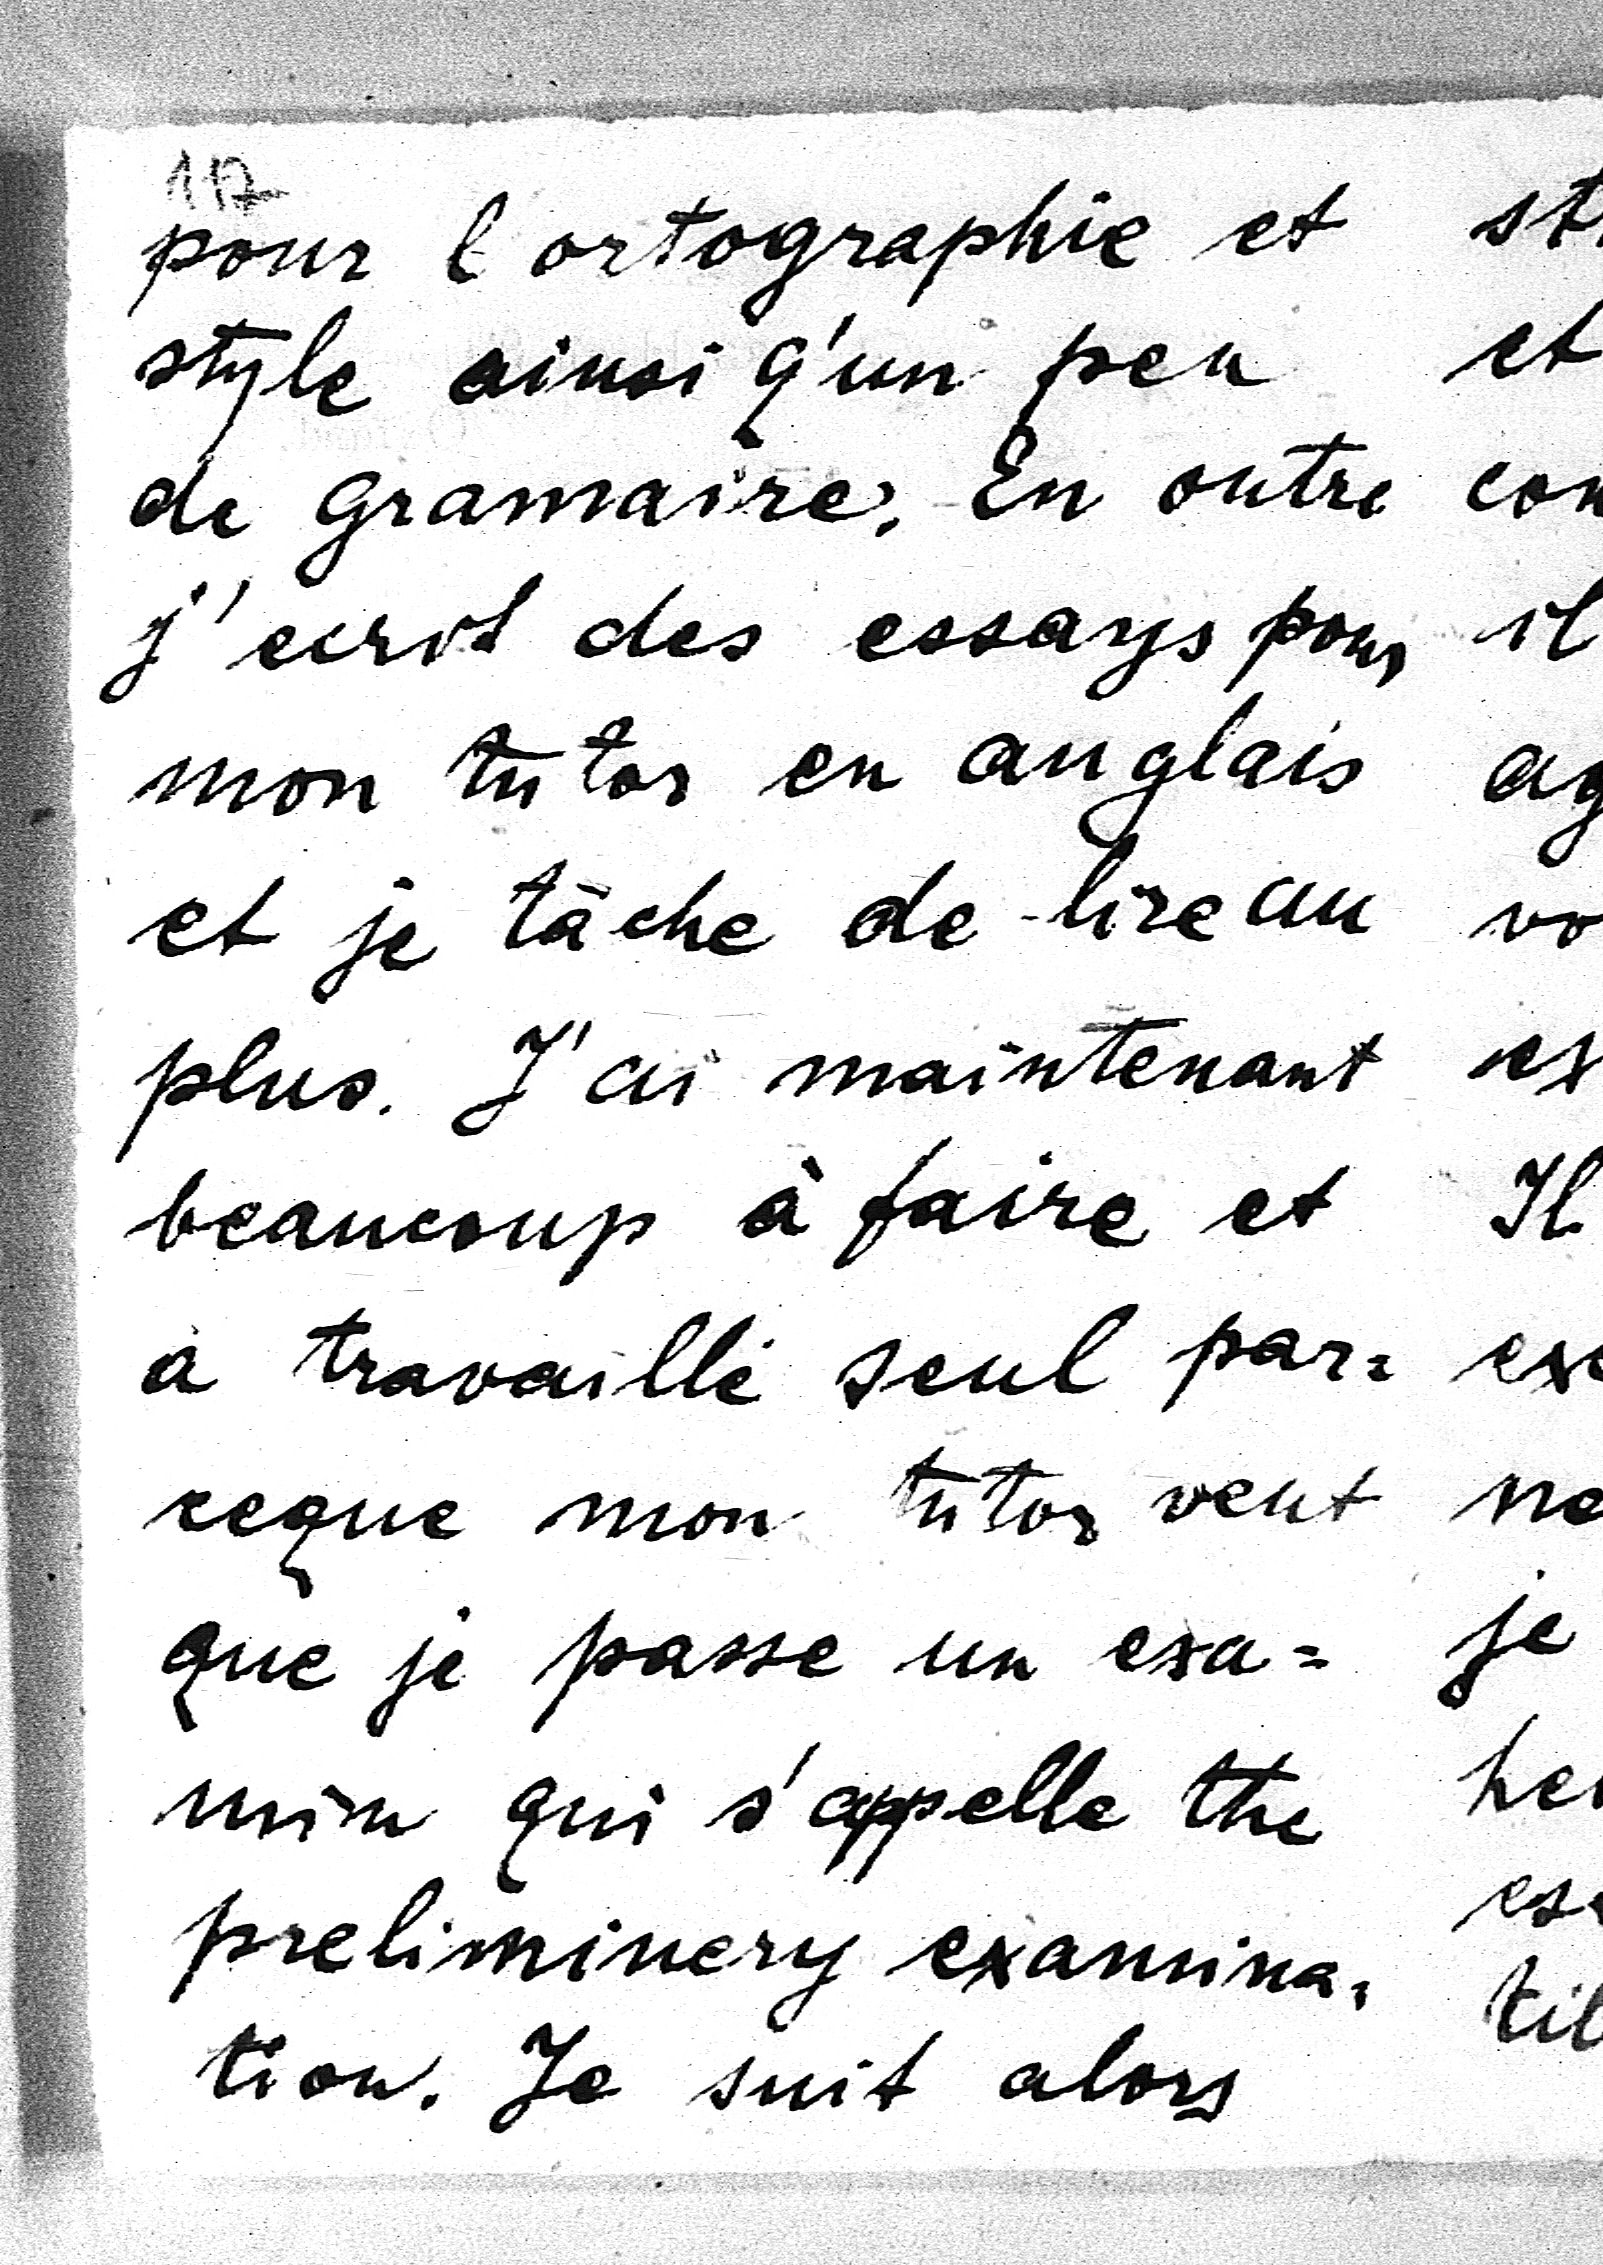 117
pour l ortographie et
style ainsi q'un peu
de gramaire. En outre
j'ecrit des essays pour
mon tutor en anglais
et je tâche de lire au
plus. J'ai maintenant
beaucoup à faire et
a travaillé seul par=
ceque mon tutor veut
que je passe un exa=
min qui s'appelle the
preliminery examina=
tion. Je suit alors
et
il
Il
je